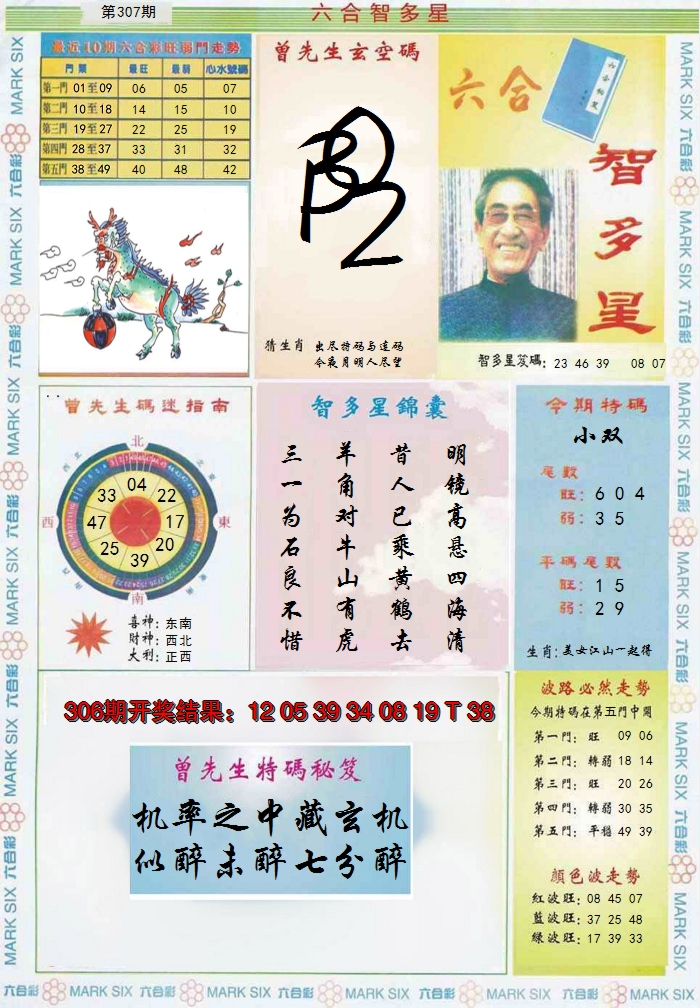 第307期
六合智多星
最近10期六合彩旺弱門走勢
門票 最旺 最弱 心水號碼
第一門 01至09 06 05 07
第二門 10至18 14 15 10
第三門 19至27 22 25 19
第四門 28至37 33 31 32
第五門 38至49 40 48 42
曾先生玄空碼
猜生肖 出尽特码与连码
今夜月明人尽望
六合
智多星
智多星笈碼: 23 46 39 08 07
曾先生碼迷指南
北
西
東
南
04
22
17
20
39
25
47
33
喜神: 东南
財神: 西北
大利: 正西
智多星錦囊
明镜高悬四海清
昔人已乘黄鹤去
羊角对牛山有虎
三一为石良不惜
今期特碼
小双
尾數
旺: 6 0 4
弱: 3 5
平碼尾數
旺: 1 5
弱: 2 9
生肖: 美女江山一起得
306期开奖结果: 12 05 39 34 08 19 T 38
曾先生特碼秘笈
机率之中藏玄机
似醉未醉七分醉
波路必然走勢
今期特碼在第五門中開
第一門: 旺 09 06
第二門: 轉弱 18 14
第三門: 旺 20 26
第四門: 轉弱 30 35
第五門: 平穩 49 39
顏色波走勢
紅波旺: 08 45 07
藍波旺: 37 25 48
绿波旺: 17 39 33
MARK SIX 六合彩